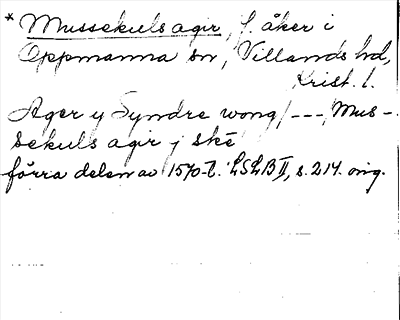 * Mussekuls agir, f. åker i
Oppmanna sn, Villands hd,
Krist. l.
Ager y Syndre wong / --- Mus-
sekuls agir j skē
förra delen av 1570-t. LSLB II, s. 214. orig.